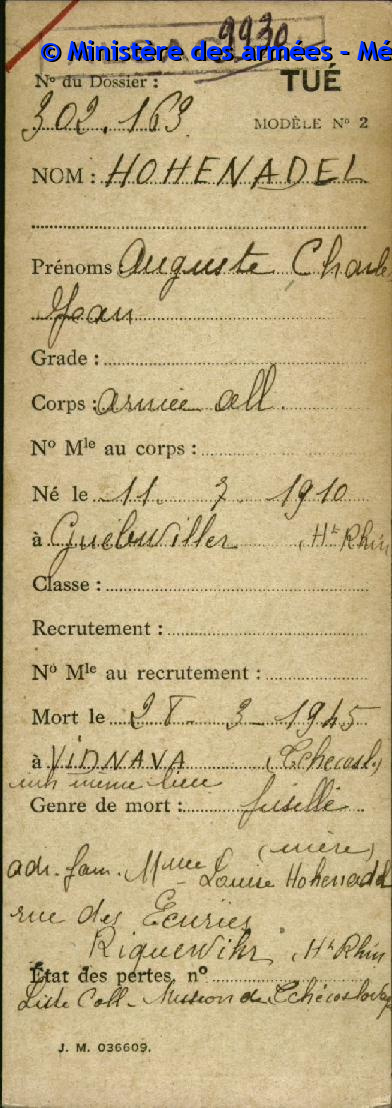 9930
© Ministère des armées - Mé
N° du Dossier :
TUÉ
302.163
MODÈLE N° 2
NOM : HOHENADEL
Prénoms : Auguste Charle
Jean
Grade :
Corps : armée all.
N° Mle au corps :
Né le 11. 7. 1910
à Guebwiller Ht Rhin
Classe :
Recrutement :
N° Mle au recrutement :
Mort le 28 - 3 - 1945
à VIDNAVA (Tchécosl.)
inh même lieu
Genre de mort : fusillé
(mère)
adr. fam. Mme Louise Hohenadel
rue des Ecuries
Riquewihr, Ht Rhin
État des pertes, n°
Liste Coll - Mission de Tchécoslovaq
J. M. 036609.